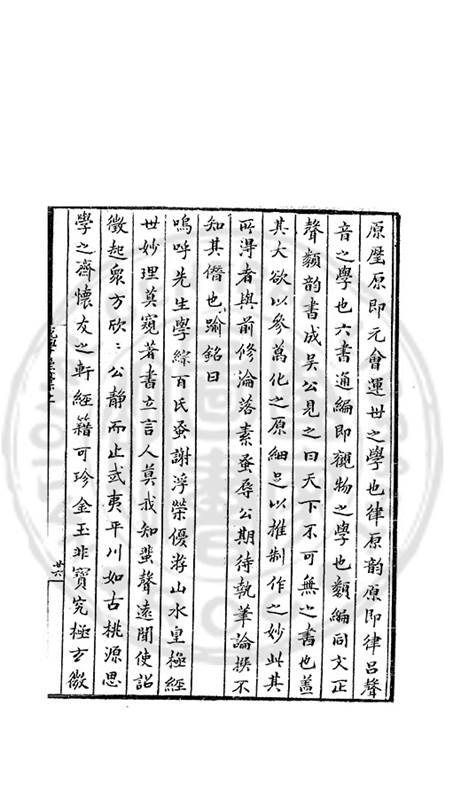 原歷原即元會運世之學也律原韵原即律呂聲
音之學也六書通編即觀物之學也類編同文正
聲類韵書成吴公見之曰天下不可無之書也蓋
其大欲以參萬化之原細足以推制作之妙此其
所淂者與前修淪落素蚤辱公期待執筆論撰不
知其僭也踰銘曰
嗚呼先生學綜百氏蚤謝浮榮優游山水皇極經
世妙理莫窺著書立言人莫我知蜚聲遠聞使詔
徵起衆方欣〻公静而止武夷平川如古桃源思
學之齋懷友之軒經籍可珍金玉非寳究極玄微
廿六